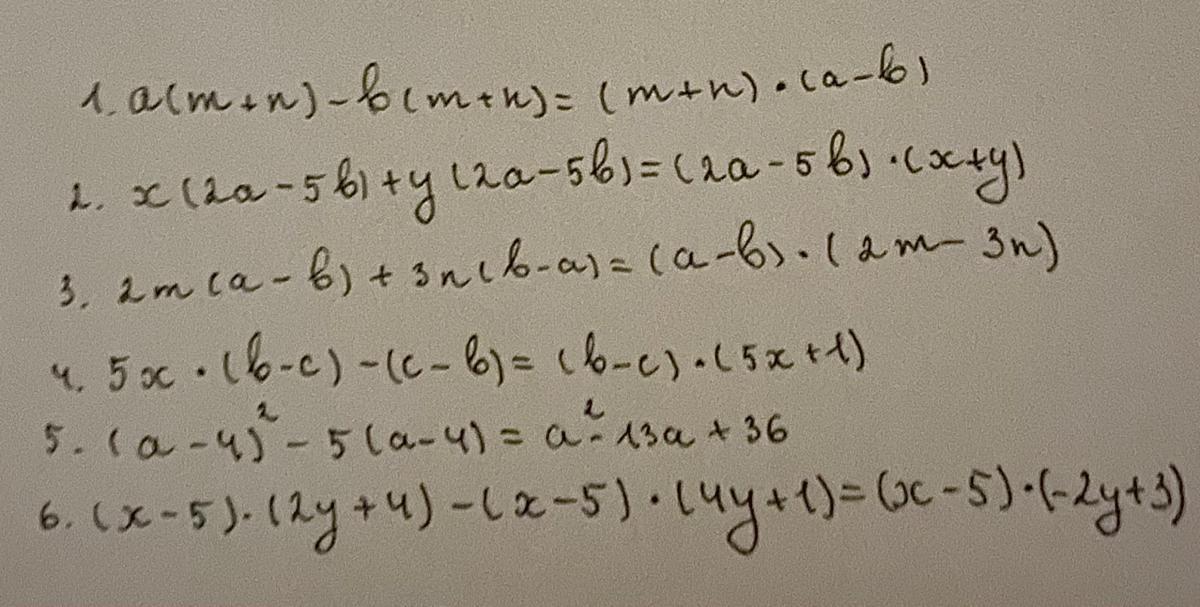 1. a(m+n)-b(m+n)=(m+n)·(a-b)
2. x(2a-5b)+y(2a-5b)=(2a-5b)·(x+y)
3. 2m(a-b)+3n(b-a)=(a-b)·(2m-3n)
4. 5x·(b-c)-(c-b)=(b-c)·(5x+1)
5. (a-4)²-5(a-4)=a²-13a+36
6. (x-5)·(2y+4)-(x-5)·(4y+1)=(x-5)·(-2y+3)